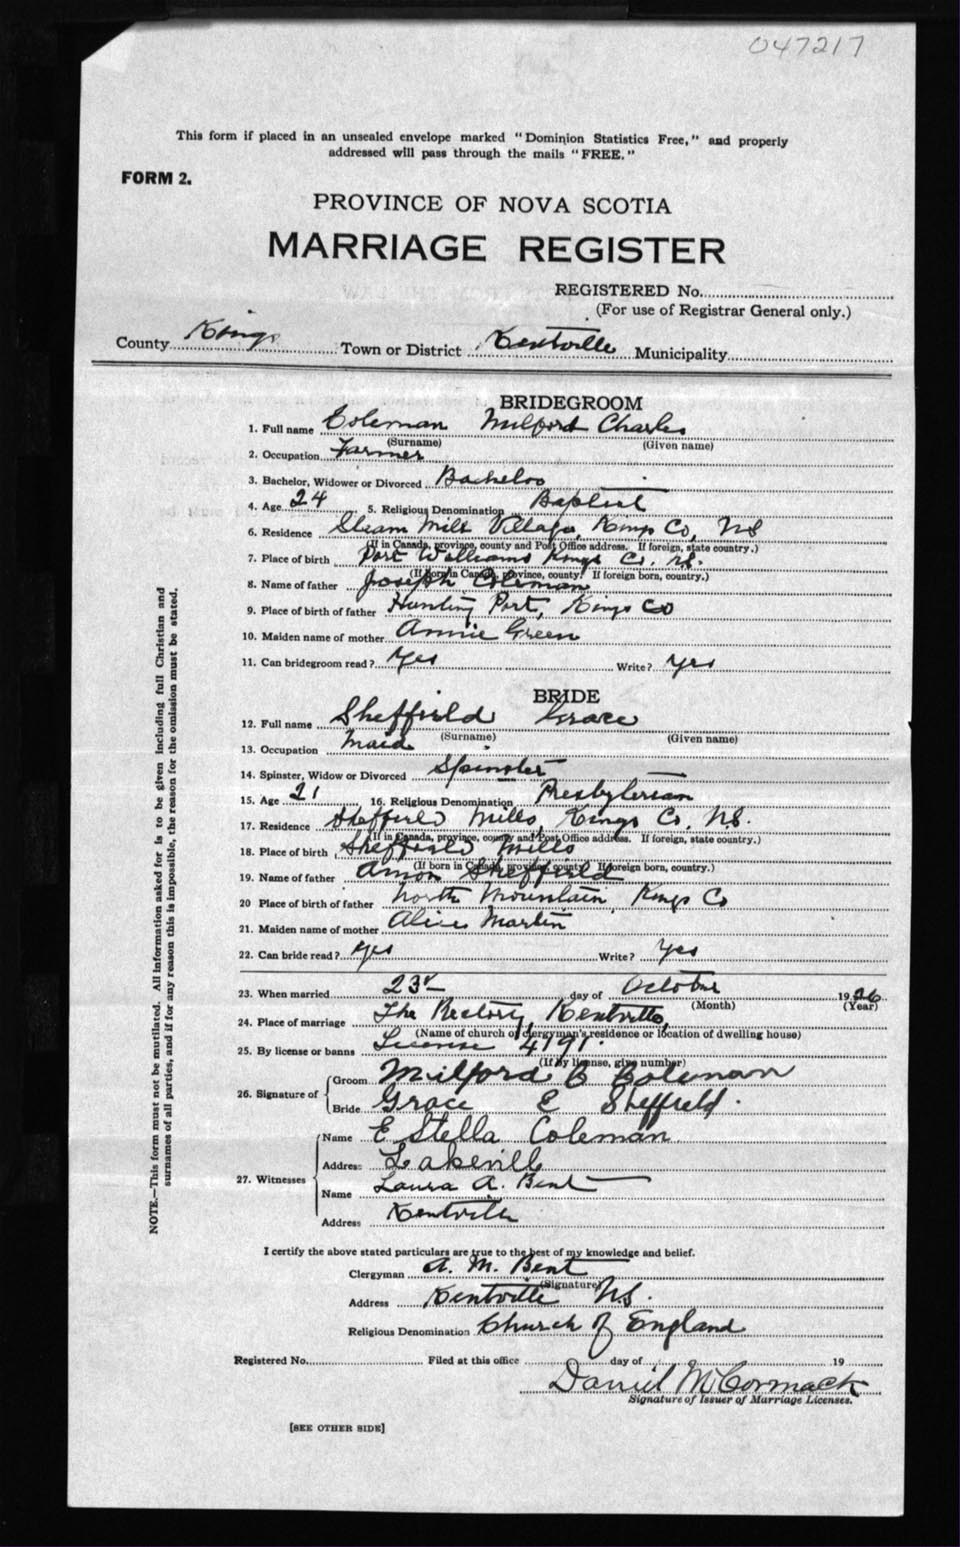 047217
This form if placed in an unsealed envelope marked "Dominion Statistics Free," and properly
addressed will pass through the mails "FREE."
FORM 2.
PROVINCE OF NOVA SCOTIA
MARRIAGE REGISTER
REGISTERED No.
(For use of Registrar General only.)
County Kings Town or District Kentville Municipality
BRIDEGROOM
1. Full name Coleman Milford Charles
(Surname) (Given name)
2. Occupation Farmer
3. Bachelor, Widower or Divorced Bachelor
4. Age 24 5. Religious Denomination Baptist
6. Residence Steam Mill Village, Kings Co, NS
(If in Canada, province, county and Post Office address. If foreign, state country.)
7. Place of birth Port Williams Kings Co. NS.
(If born in Canada, province, county. If foreign born, country.)
8. Name of father Joseph Coleman
9. Place of birth of father Hunting Port, Kings Co
10. Maiden name of mother Annie Green
11. Can bridegroom read? Yes Write? Yes
BRIDE
12. Full name Sheffield Grace
(Surname) (Given name)
13. Occupation Maid
14. Spinster, Widow or Divorced Spinster
15. Age 21 16. Religious Denomination Presbyterian
17. Residence Sheffield Mills, Kings Co, N.S.
(If in Canada, province, county and Post Office address. If foreign, state country.)
18. Place of birth Sheffield Mills
(If born in Canada, province, county. If foreign born, country.)
19. Name of father Amon Sheffield
20 Place of birth of father North Mountain, Kings Co
21. Maiden name of mother Alice Martin
22. Can bride read? Yes Write? Yes
23. When married 23r day of October 1926
(Month) (Year)
24. Place of marriage The Rectory, Kentville,
(Name of church of clergyman's residence or location of dwelling house)
25. By license or banns License 4191.
(If by license, give number)
26. Signature of Groom Milford C Coleman
Bride Grace E Sheffield.
27. Witnesses Name E Stella Coleman
Address Lakevill
Name Laura A. Bent
Address Kentville
I certify the above stated particulars are true to the best of my knowledge and belief.
Clergyman A. M. Bent
(Signature)
Address Kentville N.S.
Religious Denomination Church of England
Registered No. Filed at this office day of 19
Daniel McCormack
Signature of Issuer of Marriage Licenses.
[SEE OTHER SIDE]
NOTE.—This form must not be mutilated. All information asked for is to be given including full Christian and
surnames of all parties, and if for any reason this is impossible, the reason for the omission must be stated.